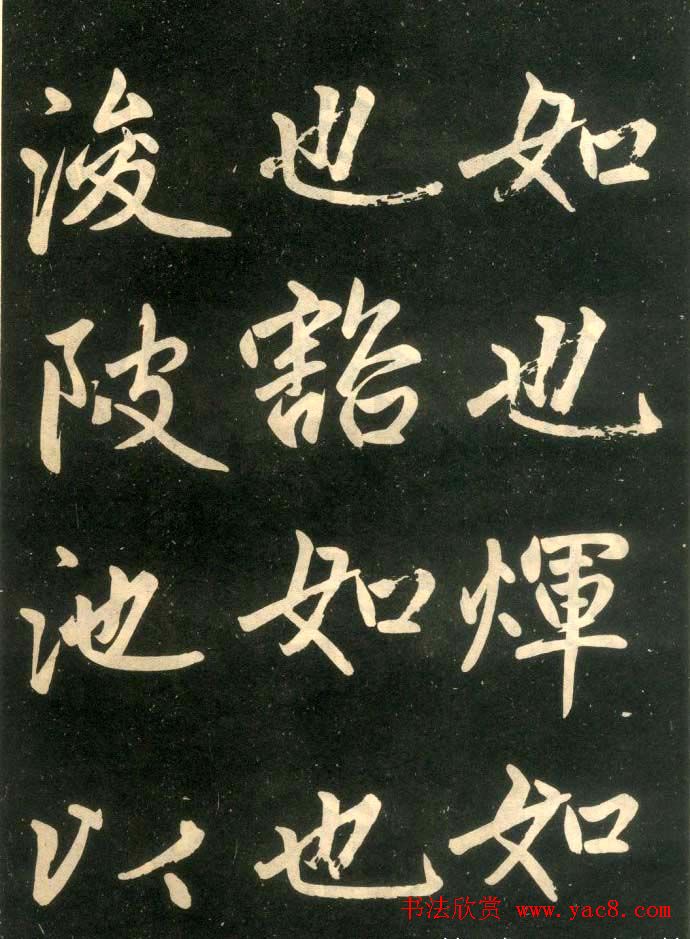 如也煇如
也豁如也
浚陂池以
书法欣赏 www.yac8.com